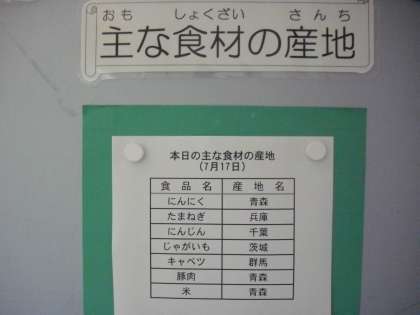 おも しょくざい さんち
主な食材の産地
本日の主な食材の産地
(7月17日)
食品名 産地名
にんにく 青森
たまねぎ 兵庫
にんじん 千葉
じゃがいも 茨城
キャベツ 群馬
豚肉 青森
米 青森